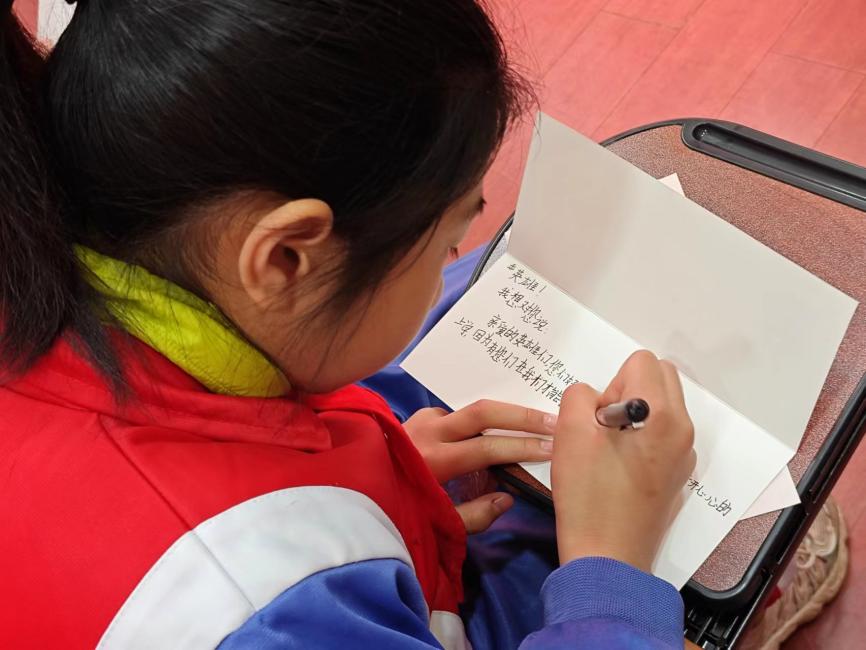 英雄！
我想对您说：
亲爱的英雄们，您们
上学，因为有您们在我们才能 开心心的